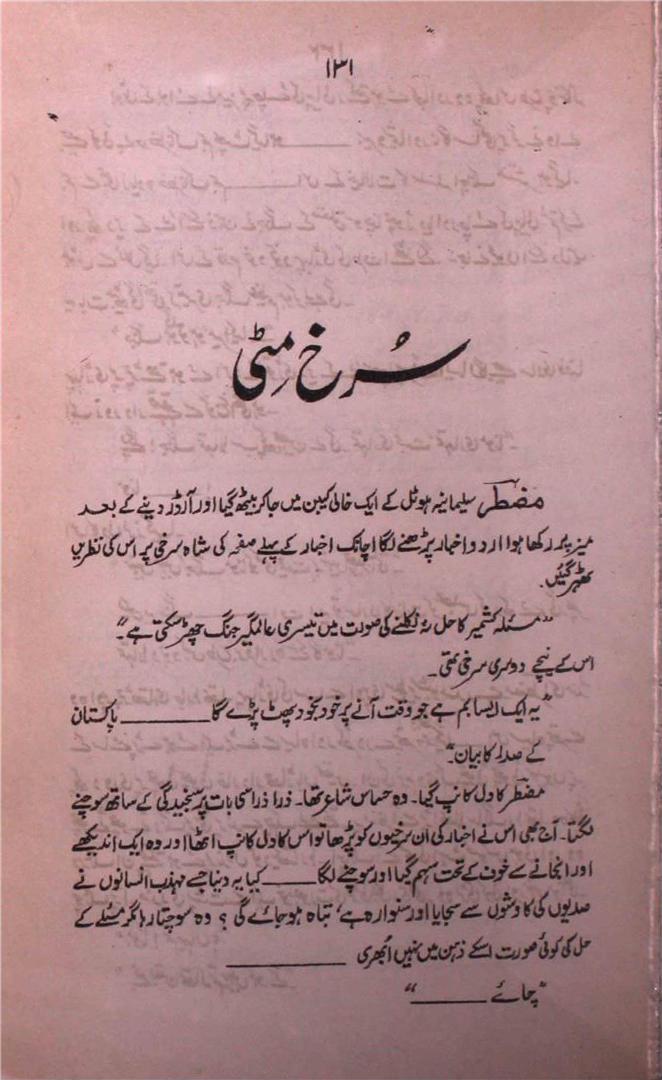 ۱۳۱
سُرخ مِٹی
مضطر سلیمانیہ ہوٹل کے ایک خالی کیبن میں جاکر بیٹھ گیا اور آرڈر دینے کے بعد
میز پر رکھا ہوا اردو اخبار پڑھنے لگا اچانک اخبار کے پہلے صفحہ کی شاہ سرخی پر اس کی نظریں
ٹھہر گئیں۔
”مسئلہ کشمیر کا حل نہ نکلنے کی صورت میں تیسری عالمگیر جنگ چھڑ سکتی ہے“۔
اس کے نیچے دوسری سرخی تھی۔
”یہ ایک ایسا بم ہے جو وقت آنے پر خود بخود پھٹ پڑے گا ـــــــــ پاکستان
کے صدر کا بیان“۔
مضطر کا دل کانپ گیا۔ وہ حساس شاعر تھا۔ ذرا ذرا سی بات پر سنجیدگی کے ساتھ سوچنے
لگتا۔ آج بھی اس نے اخبار کی ان سرخیوں کو پڑھا تو اس کا دل کانپ اٹھا اور وہ ایک اندیکھے
اور انجانے سے خوف کے تحت سہم گیا اور سوچنے لگا ـــــــــ کیا یہ دنیا جسے مہذب انسانوں نے
صدیوں کی کاوشوں سے سجایا اور سنوارہ ہے، تباہ ہو جائے گی؟ وہ سوچتا رہا مگر مسئلے کے
حل کی کوئی صورت اسکے ذہن میں نہیں اُبھری ـــــــــ
”چائے ـــــــــ“